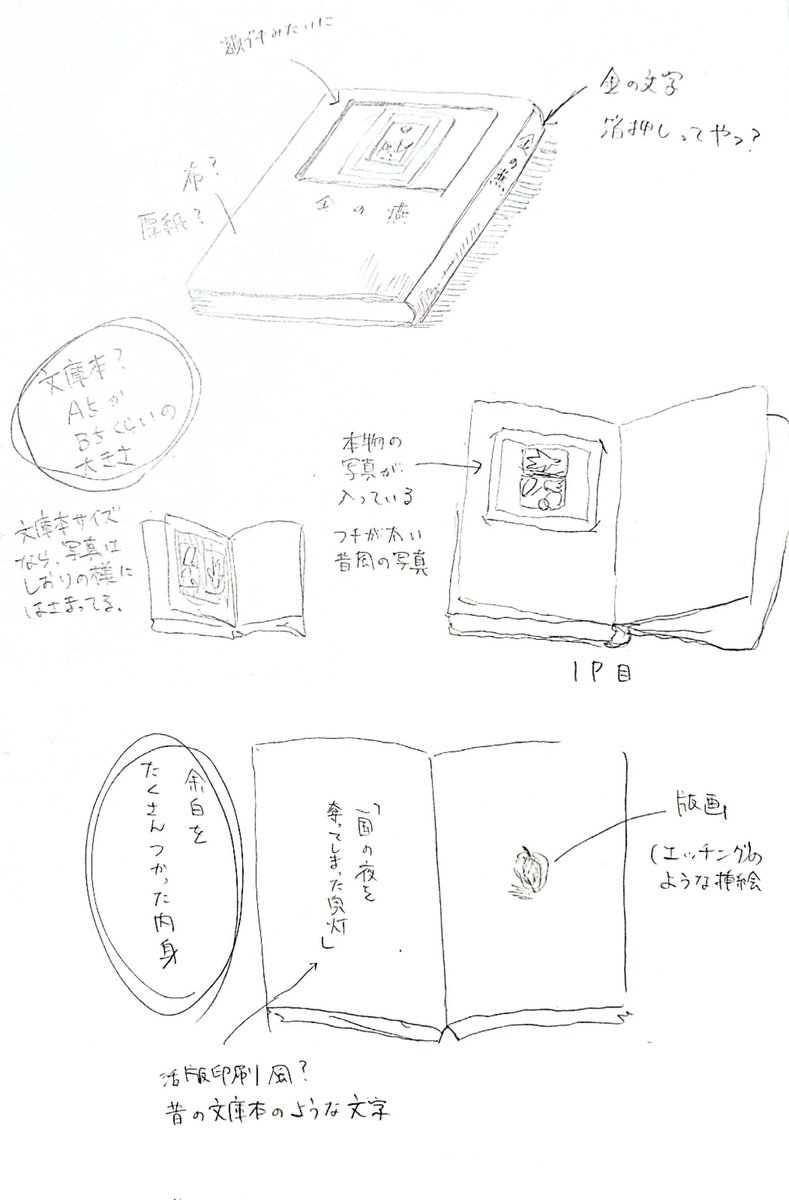 額ブチみたいに
金の文字
箔押しってやつ?
布?
厚紙?
金の燕
金の燕
文庫本?
A5か
B5くらいの
大きさ
文庫本サイズ
なら、写真は
しおりの様に
はさまってる。
本物の
写真が
入っている
フチが太い
昔風の写真
1P目
余白を
たくさんつかった内身
「国の夜を
奪ってしまった貝灯」
版画
(エッチング)の
ような挿絵
活版印刷風?
昔の文庫本のような文字